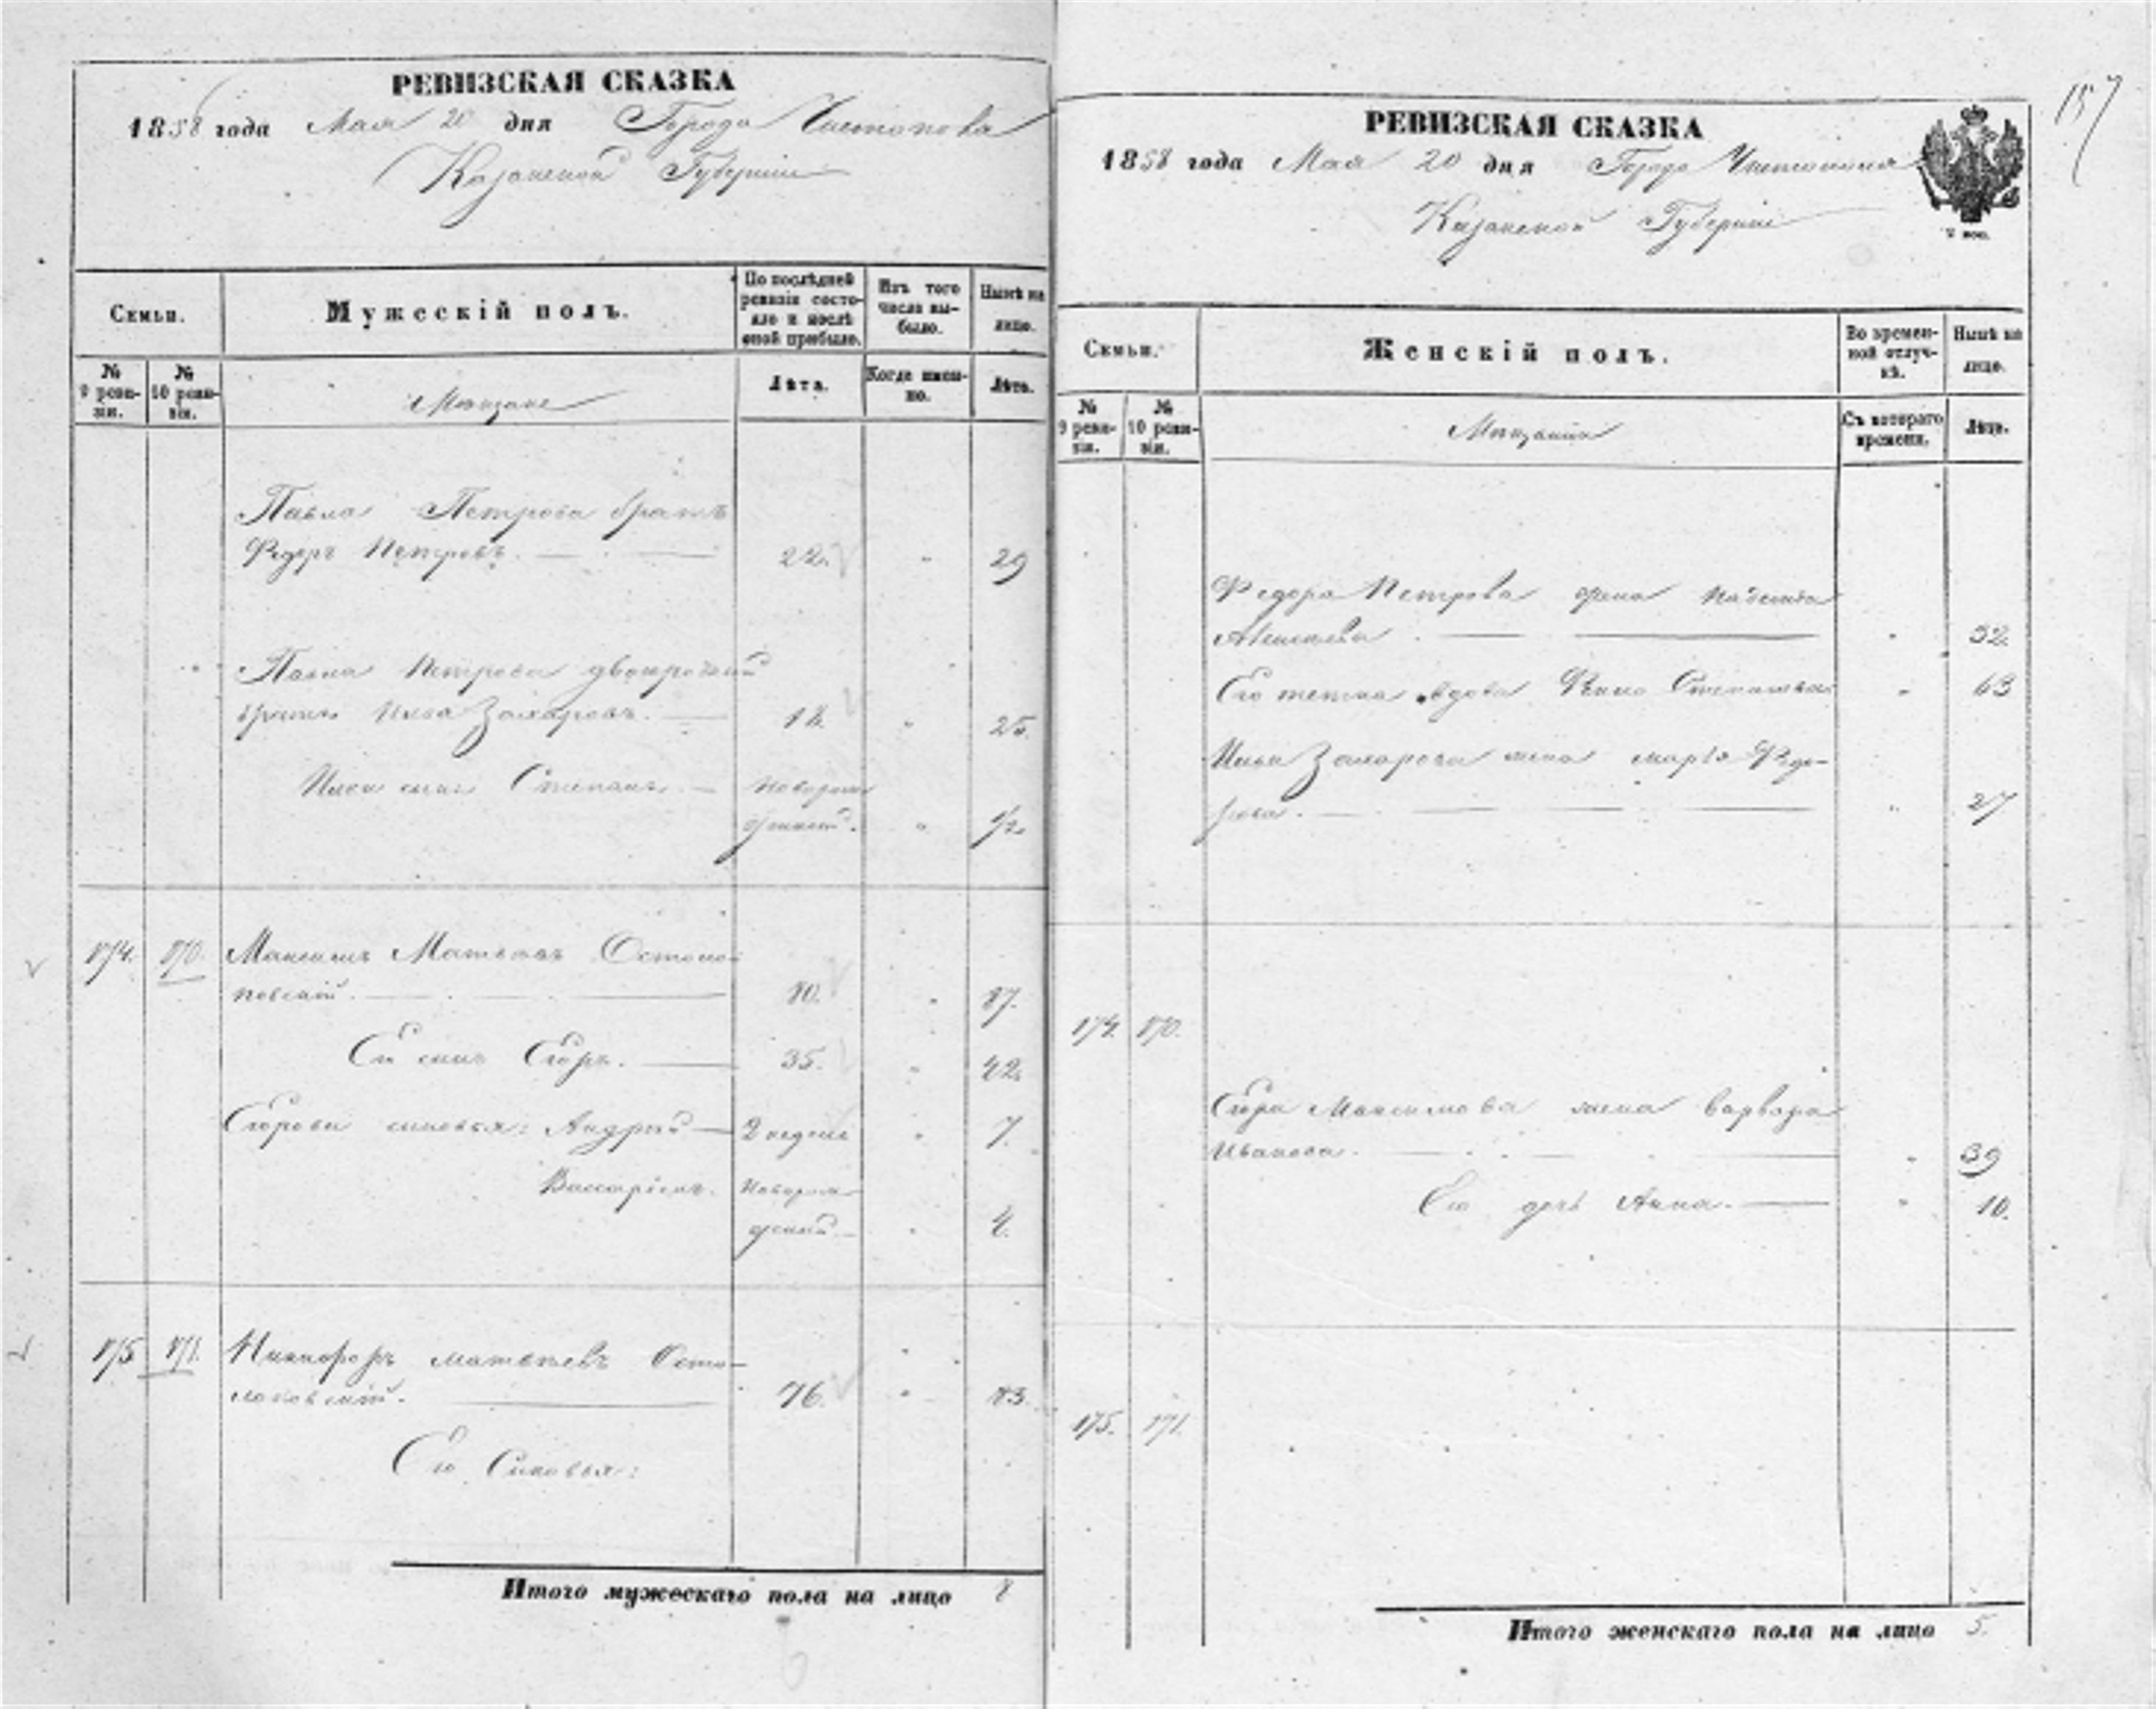 РЕВИЗСКАЯ СКАЗКА
1858 года Мая 20 дня Города Чистополя
Казанской Губерніи
Семьи.
Мужескій полъ.
По послѣдней ревизіи состояло и послѣ оной прибыло.
Изъ того числа выбыло.
Нынѣ на лицо.
№ 9 ревизіи.
№ 10 ревизіи.
Мѣщане
Лѣта.
Когда именно.
Лѣта.
Павла Петрова братъ
Федоръ Петровъ. 22. " 29
Павла Петрова двоюродный
братъ Захаровъ. 18. " 25.
сынъ Степанъ. Новорож
денный. " 1/2
174. 170. Максимъ Матвѣевъ Остоло
повскій. 80. " 87.
Его сынъ Егоръ. 35. " 42.
Егоровы сыновья: Андрей 2 недѣль " 7.
Виссаріонъ. Новорож
денный " 4.
175 171. Никифоръ Матвѣевъ Осто
лоповскій. 76. " 83.
Его Сыновья:
Итого мужескаго пола на лицо 8
157
РЕВИЗСКАЯ СКАЗКА
1858 года Мая 20 дня Города Чистополя
Казанской Губерніи
Семьи.
Женскій полъ.
Во временной отлучкѣ.
Нынѣ на лицо.
№ 9 ревизіи.
№ 10 ревизіи.
Мѣщанки
Съ котораго времени.
Лѣта.
Федора Петрова жена Надежда
" 32.
Его тетка вдова Степанова " 63
Захарова жена Марья Федо
рова. " 27
174. 170.
Егора Максимова жена Варвара
Иванова. " 39
Его дочь Анна. " 10.
175. 171.
Итого женскаго пола на лицо 5.